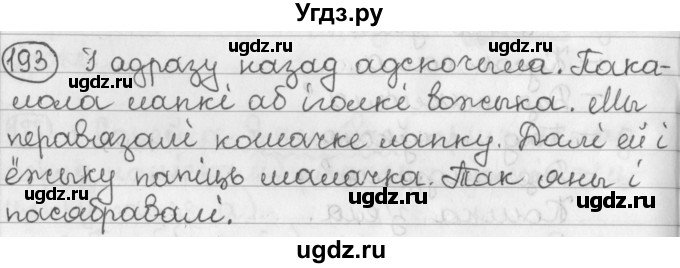 Угдз.ру
193 І адразу назад адскочыла. Пака-
лола лапкі аб іголкі вожыка. Мы
перавязалі кошачке лапку. Далі ей і
ёжыку папіць малачка. Так яны і
пасябравалі.
ugdz.ru ugdz.ru ugdz.ru
ugdz.ru ugdz.ru ugdz.ru
ugdz.ru ugdz.ru
ugdz.ru